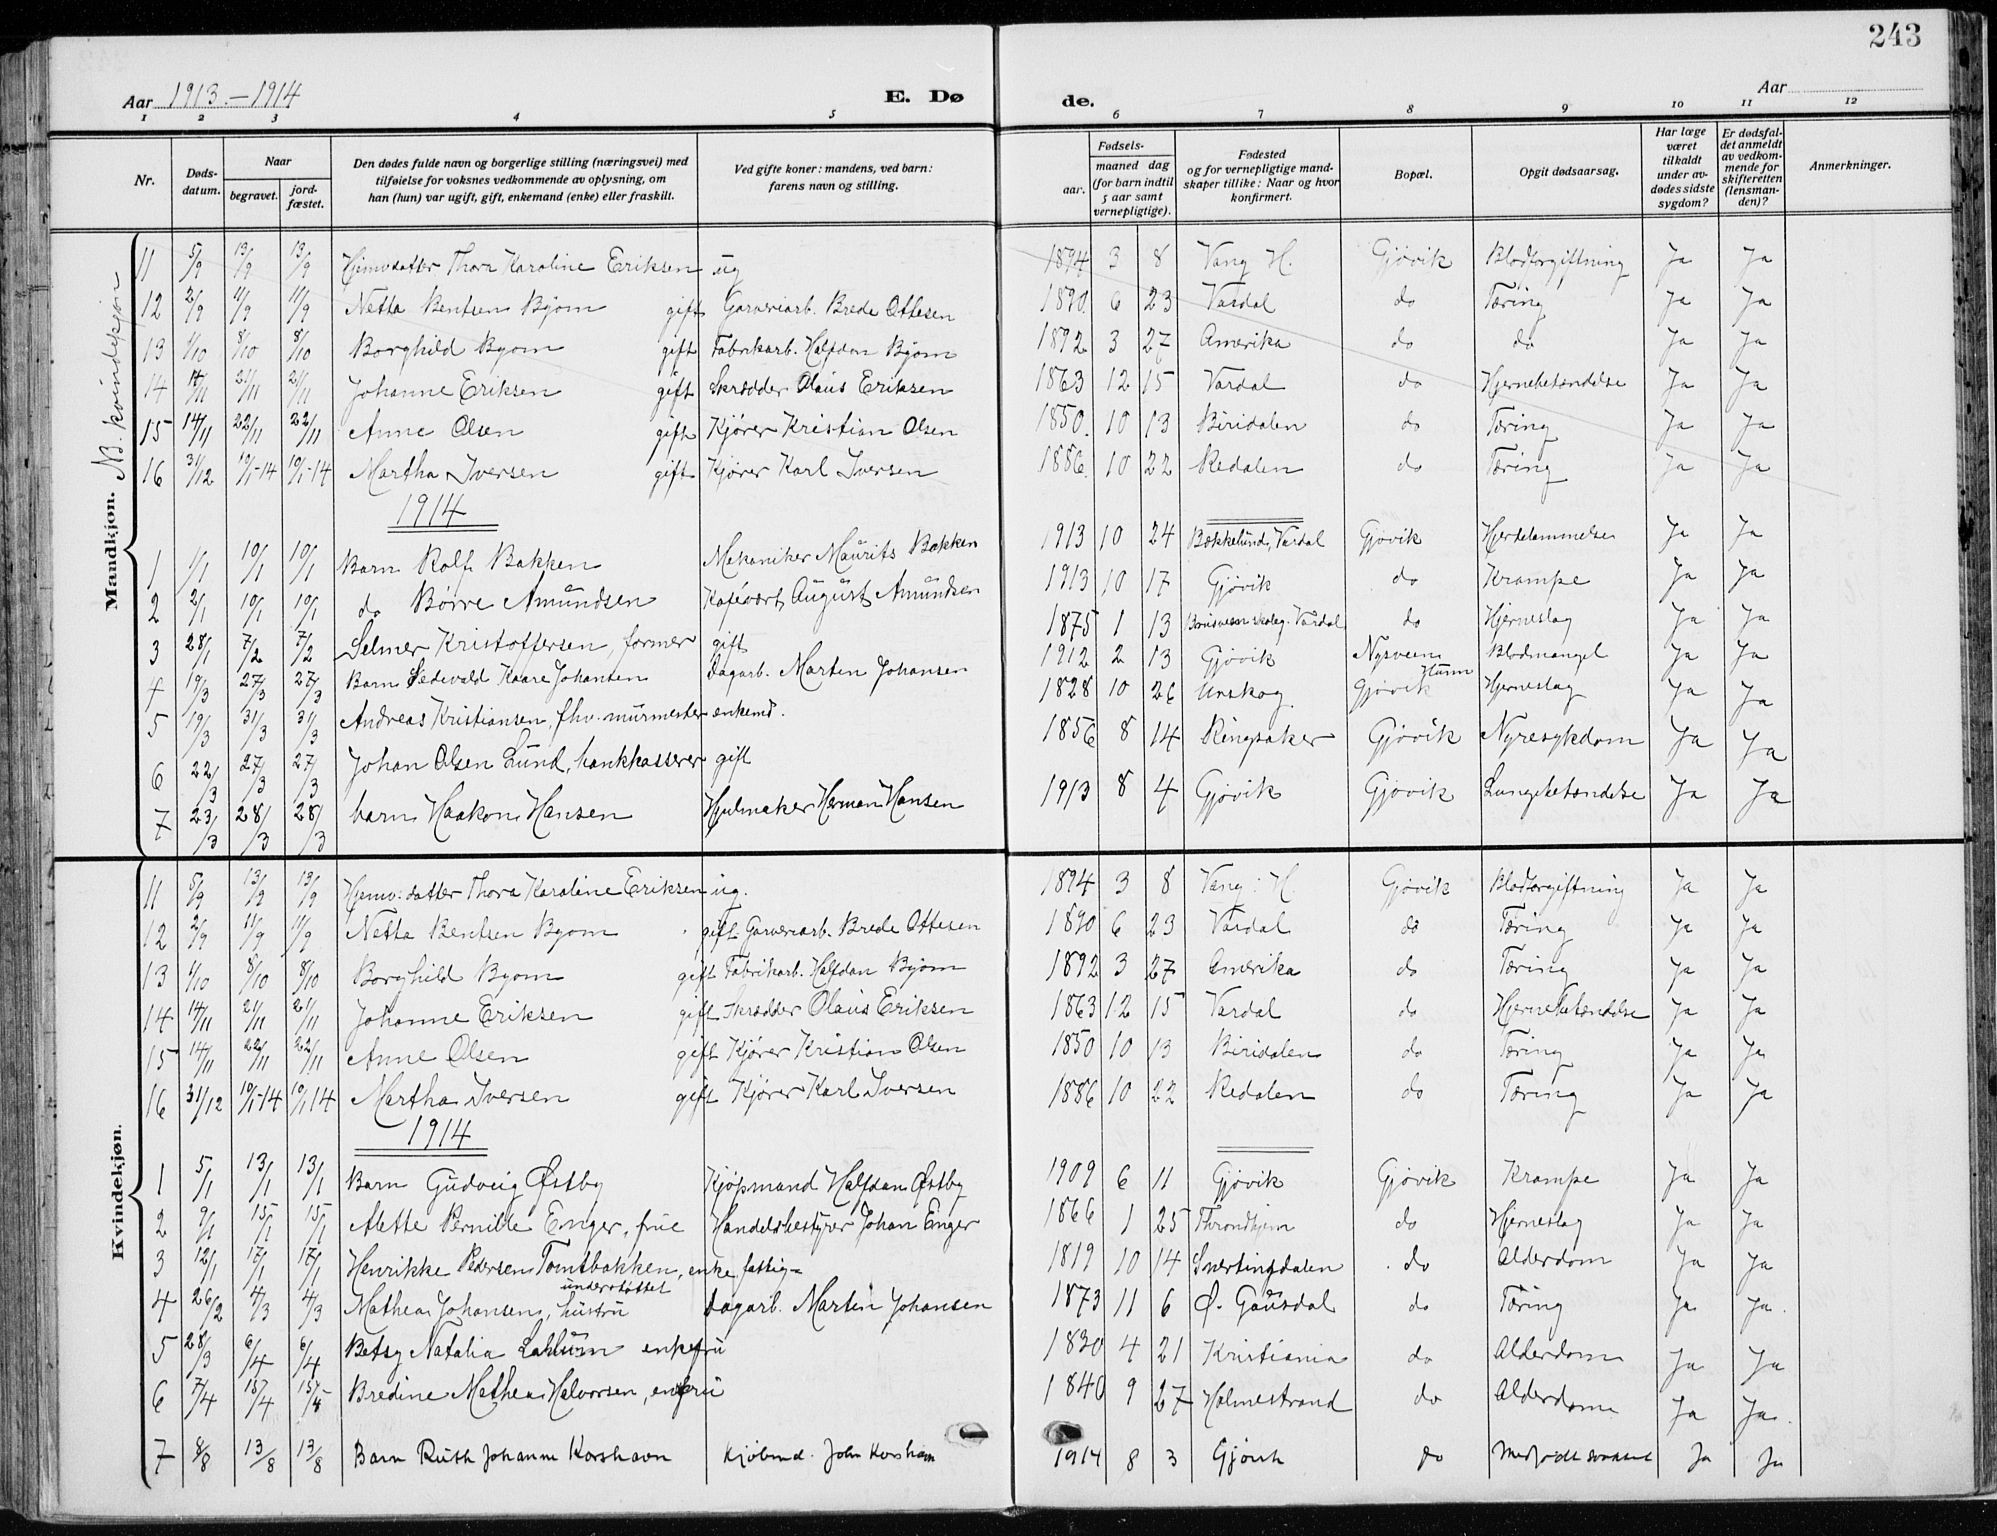 243
Aar 1913.–1914 E. Dø de. Aar
1 2 3 4 5 6 7 8 9 10 11 12
Nr. Døds-datum. Naar begravet. jord-fæstet. Den dødes fulde navn og borgerlige stilling (næringsvei) med tilføielse for voksnes vedkommende av oplysning, om han (hun) var ugift, gift, enkemand (enke) eller fraskilt. Ved gifte koner: mandens, ved barn: farens navn og stilling. Fødsels- aar. maaned dag (for barn indtil 5 aar samt vernepligtige). Fødested og for vernepligtige mand-skaper tillike: Naar og hvor konfirmert. Bopæl. Opgit dødsaarsag. Har læge været tilkaldt under av-dødes sidste sygdom? Er dødsfal-det anmeldt av vedkom-mende for skifteretten (lensman-den)? Anmerkninger.
Mandkjøn. NB. kvindekjøn
11 5/9 13/9 13/9 Hjemv.datter Thora Karoline Eriksen ug 1894 3 8 Vang H. Gjøvik Blodforgiftning Ja Ja
12 2/9 11/9 11/9 Netta Bentsen Byom gift Garveriarb. Brede Ottesen 1890 6 23 Vardal do Tæring Ja Ja
13 1/10 8/10 8/10 Borghild Byom gift Fabrikarb. Halfdan Byom 1892 3 27 Amerika do do Ja Ja
14 14/11 21/11 21/11 Johanne Eriksen gift Skrædder Olaus Eriksen 1863 12 15 Vardal do Hjernebetændelse Ja Ja
15 14/11 22/11 22/11 Anne Olsen gift Kjører Kristian Olsen 1850. 10 13 Biridalen do Tæring Ja Ja
16 31/12 10/1-14 10/1-14 Martha Iversen gift Kjører Karl Iversen 1886. 10 22 Redalen do Tæring Ja Ja
1914
1 1/1 10/1 10/1 Barn Rolf Bakken Mekaniker Maurits Bakken 1913 10 24 Bækkelund, Vardal Gjøvik Hjertelammelse Ja Ja
2 2/1 10/1 10/1 do Børre Amundsen Kafévært August Amundsen 1913 10 17 Gjøvik do Krampe Ja Ja
3 28/1 7/2 7/2 Selmer Kristoffersen, former gift 1875 1 13 Vardal do Hjerneslag Ja Ja
4 19/3 27/3 27/3 Barn Sedevald Kaare Johansen Dagarb. Martin Johansen 1912 2 13 Gjøvik Nysveen Hunn Blodmangel Ja Ja
5 19/3 31/3 31/3 Andreas Kristiansen, fhv. murmester enkemd. 1828 10 26 Urskog Gjøvik Hjerneslag Ja Ja
6 22/3 27/3 27/3 Johan Olsen Lund, bankkasserer gift 1856 8 14 Ringsaker Gjøvik Nyresykdom Ja Ja
7 23/3 28/3 28/3 barn Haakon Hansen Hjulmaker Herman Hansen 1913 8 4 Gjøvik Gjøvik Lungebetændelse Ja Ja
Kvindekjøn.
11 5/9 13/9 13/9 Hjemv: datter Thora Karoline Eriksen ug. 1894 3 8 Vang: H. Gjøvik Blodforgiftning Ja Ja
12 2/9 11/9 11/9 Netta Bentsen Byom gift Garveriarb. Brede Ottesen 1890 6 23 Vardal do Tæring Ja Ja
13 1/10 8/10 8/10 Borghild Byom gift Fabrikarb. Halfdan Byom 1892 3 27 Amerika do Tæring Ja Ja
14 14/11 21/11 21/11 Johanne Eriksen gift Skrædder Olaus Eriksen 1863 12 15 Vardal do Hjernebetændelse Ja Ja
15 14/11 22/11 22/11 Anne Olsen gift Kjører Kristian Olsen 1850 10 13 Biridalen do Tæring Ja Ja
16 31/12 10/1-14 10/1 14 Martha Iversen gift Kjører Karl Iversen 1886 10 22 Redalen do Tæring Ja Ja
1914
1 5/1 13/1 13/1 Barn Gudveig Østby Kjøpmand Halfdan Østby 1909 6 11 Gjøvik Gjøvik Krampe Ja Ja
2 9/1 15/1 15/1 Alette Pernille Enger, frue Handelsbestyrer Johan Enger 1866 1 25 Throndhjem do Hjerneslag Ja Ja
3 12/1 17/1 17/1 Henrikke Pedersen Tomtbakken, enke fattig= understøttet 1819 10 14 Snertingdalen do Alderdom Ja Ja
4 26/2 4/3 4/3 Mathea Johansen, hustru Dagarb. Martin Johansen 1873 11 6 Ø. Gausdal do Tæring Ja Ja.
5 28/3 6/4 6/4 Betsy Natalia Lahlum enkefru 1830 4 21 Kristiania do Alderdom Ja Ja
6 7/4 15/4 15/4 Bredine Mathea Halvorsen, enkefru 1840 9 27 Holmestrand do Alderdom Ja Ja.
7 8/8 13/8 13/8 Barn Ruth Johanne Korshavn Kjøbmd. John Korshavn 1914 8 3 Gjøvik do Medfødt svakhet Ja Ja